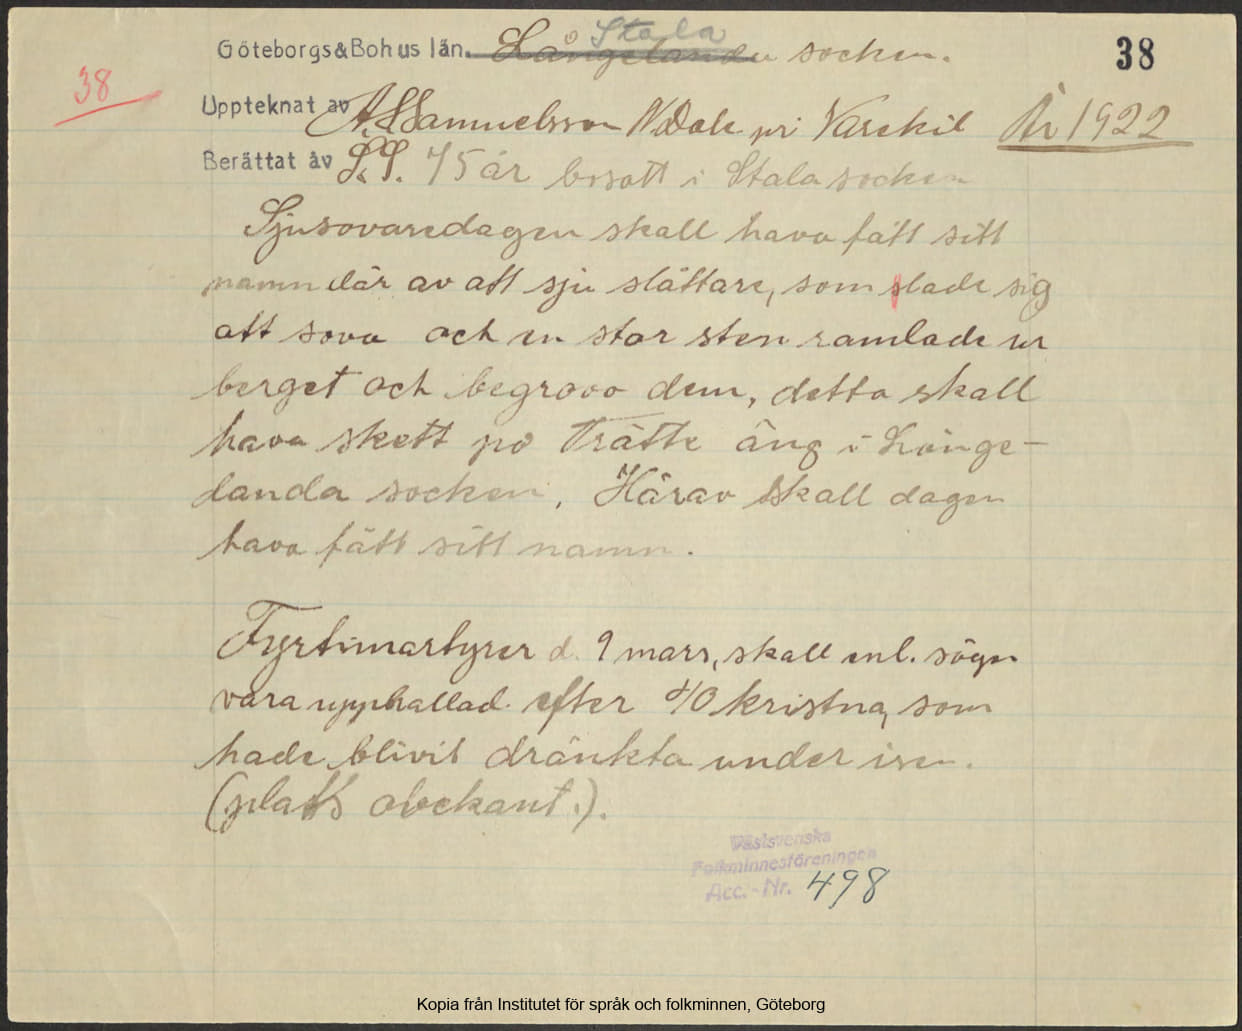 Göteborgs & Bohus län. Långelanda Stala socken.
38
38
Uppteknat av A. S. Samuelsson N. Dale pr Varekil År 1922
Berättat av S. S. 75 år bosatt i Stala socken
Sjusovaredagen skall hava fått sitt
namn där av att sju slåttare, som slade sig
att sova och en stor sten ramlade ur
berget och begrovo dem, detta skall
hava skett på Trätte äng i Långe-
landa socken, Härav skall dagen
hava fått sitt namn.
Fyrtimartyrer d. 9 mars, skall enl. sägn
vara upphallad efter 40 kristna, som
hade blivit dränkta under isen.
(platts obekant.).
Västsvenska
Folkminnesföreningen
Acc. - Nr. 498
Kopia från Institutet för språk och folkminnen, Göteborg